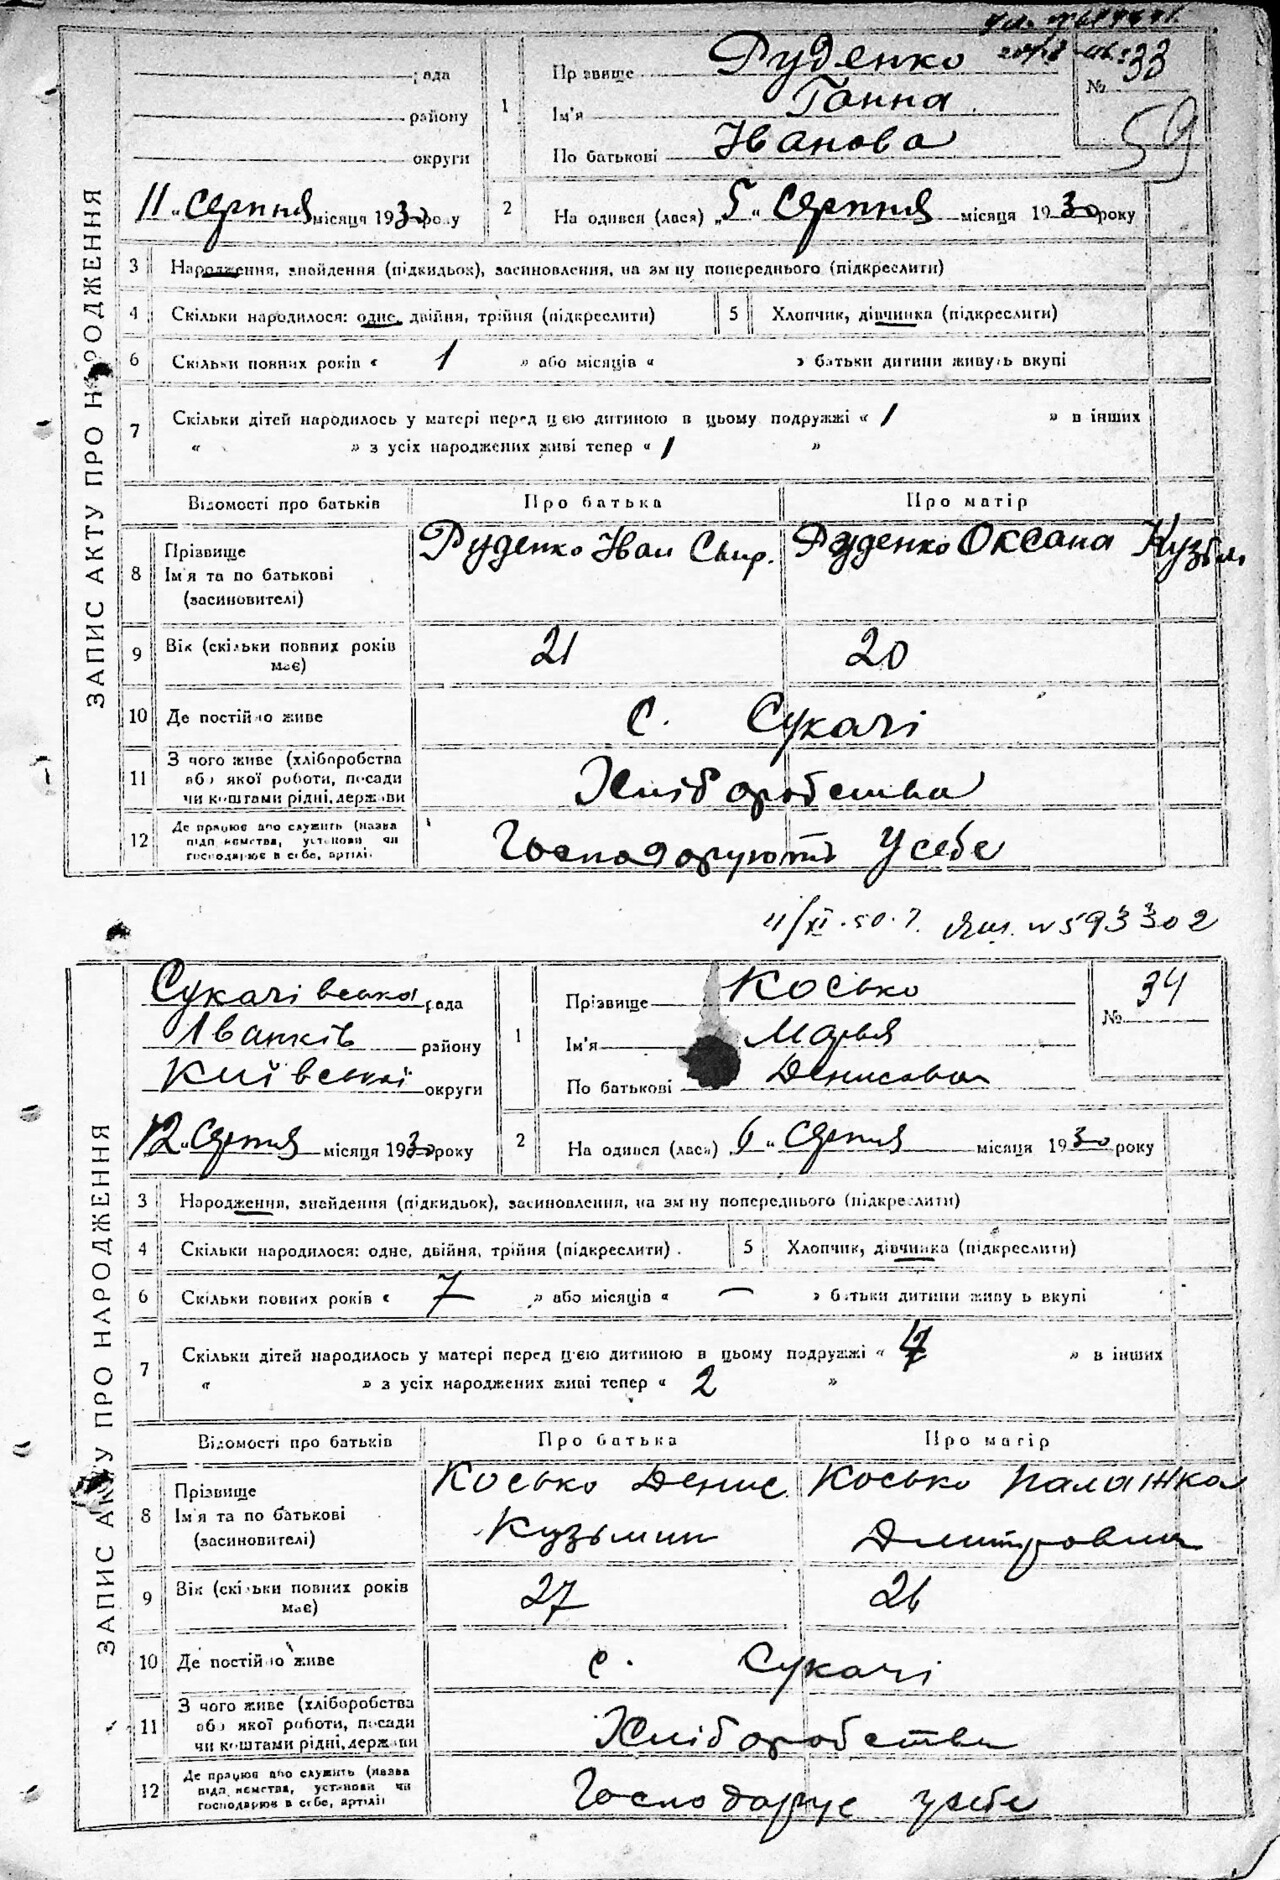 33
рада
Прізвище Руденко
№
59
району
1
Ім'я Ганна
округи
По батькові Іванова
11 „ серпня місяця 1930 року
2
На одився (лася) „ 5 " серпня місяця 1930 року
ЗАПИС АКТУ ПРО НАРОДЖЕННЯ
3 Народження, знайдення (підкидьок), засиновлення, на зм ну попереднього (підкреслити)
4 Скільки народилося: одне, двійня, трійня (підкреслити)
5 Хлопчик, дівчинка (підкреслити)
6 Скільки повних років « 1 » або місяців « » батьки дитини живуть вкупі
7 Скільки дітей народилось у матері перед цією дитиною в цьому подружжі « 1 » в інших
« » з усіх народжених живі тепер « 1 »
Відомості про батьків Про батька Про матір
8 Прізвище Ім'я та по батькові (засиновителі)
Руденко Іван Спир.
Руденко Оксана Кузьм.
9 Вік (скільки повних років має) 21 20
10 Де постійно живе с. Сукачі
11 З чого живе (хліборобства або якої роботи, посади чи коштами рідні, держави
Хліборобства
12 Де працює або служить (назва підп немства, установи чи господарює в себе, артілі.
Господорують у себе
11/XI.50.р. № 593302
Сукачівська рада
Прізвище Косько
34
№
Іванків району
1
Ім'я Марья
Київської округи
По батькові Денисовна
12 „ серпня місяця 1930 року
2
На одився (лася) 6 „ серпня місяця 1930 року
ЗАПИС АКТУ ПРО НАРОДЖЕННЯ
3 Народження, знайдення (підкидьок), засиновлення, на зм ну попереднього (підкреслити)
4 Скільки народилося: одне, двійня, трійня (підкреслити).
5 Хлопчик, дівчинка (підкреслити)
6 Скільки повних років « 7 » або місяців « — » батьки дитини живу ь вкупі
7 Скільки дітей народилось у матері перед цією дитиною в цьому подружжі « » в інших
« » з усіх народжених живі тепер « 2 »
Відомості про батьків Про батька Про матір
8 Прізвище Ім'я та по батькові (засиновителі)
Косько Денис Кузьмич
Косько Палажка Дмитровна
9 Вік (скільки повних років має) 27 26
10 Де постійно живе с. Сукачі
11 З чого живе (хліборобства або якої роботи, посади чи коштами рідні, держави
Хліборобства
12 Де працює або служить (назва підп немства, установи чи господарює в себе, артілі
Господарує у себе